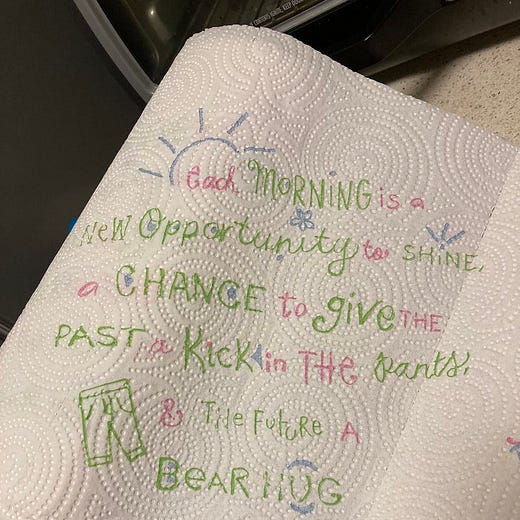 Each MORNING is a
NEW Opportunity to SHINE,
a CHANCE to give THE
PAST a Kick in THE pants,
& THE FUTURE A
BEAR HUG